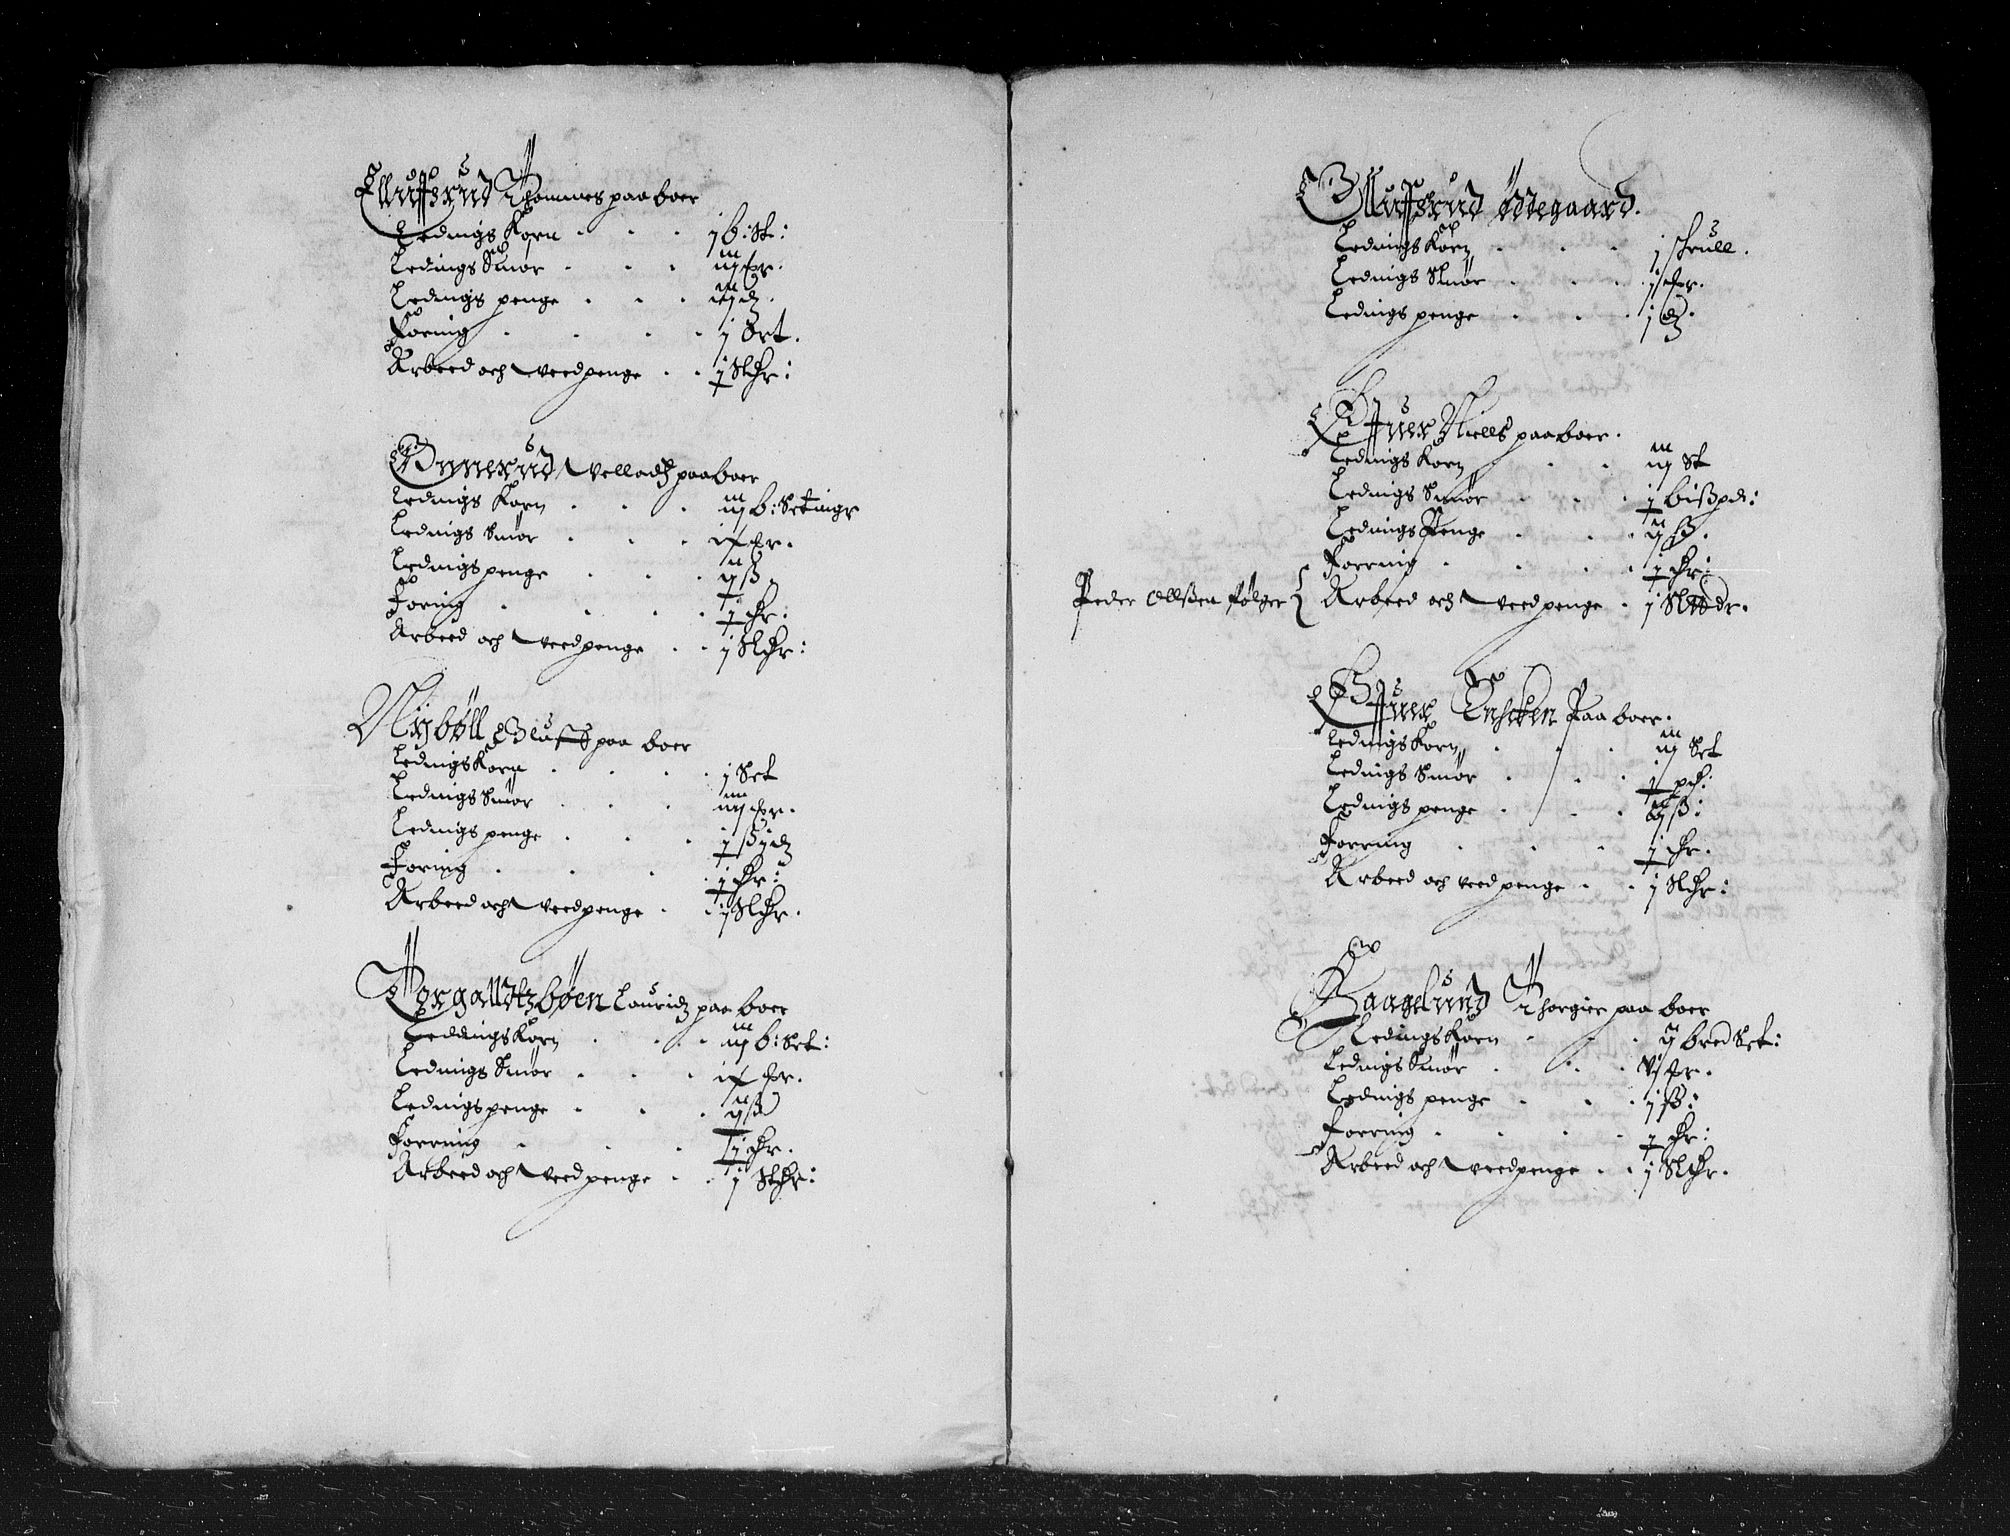 Elluffsrud Thommes paa boer
Ledings Korn . . . j b: St:
Ledings Smør . . . iij fr.
Ledings penge . . . iij d.
Foring . . . . j Ort.
Arbeed och Veedpenge . . j Slhr:
Onnerud Vellads paa boer
Ledings Korn . . . iij b: Setinge
Ledings Smør . . . ix fr.
Ledings penge . . . ij ß
Foring . . . . j hr:
Arbeed och Veedpenge . . j Slhr:
Nÿbøll Oluff paa boer
Ledings Korn . . . . j Set
Ledings Smør . . . iiij fr.
Ledings penge . . . j ß j d
Foring . . . . j hr:
Arbeed och Veedpenge . . j Slhr.
Torgalldtzbøen Lauridz paa boer
Leddings Korn . . . . iij b: Set:
Ledings Smør . . . ix fr.
Ledings penge . . . ij ß
Forring . . . j hr.
Arbeed och Veedpenge . . j Slhr:
Elluffsrud ødegaard.
Ledings Korn . . . j skrull.
Ledings Smør . . . j fr.
Ledings penge . . . j d.
Effuer Niells paa boer.
Ledings Korn . . iij St
Ledings Smør . . . j bißpd:
Ledings Penge . . . ij ß.
Forring . . . . j hr:
Peder Ollßen følger { Arbeed och Veedpenge . j Sl dr.
Effuer Paa boer.
Ledings Korn . . . iij Set
Ledings Smør . . . j pd:
Ledings penge . . . ß:
Forring . . . j hr.
Arbeed och veedpenge . . j Slhr:
Haagelund Thorgier paa boer
Ledings Korn . . . ij bred Set:
Ledings Smør . . . vj fr.
Ledings penge . . . j ß:
Foering . . . . j hr:
Arbeed och Veedpenge . . j Slhr.